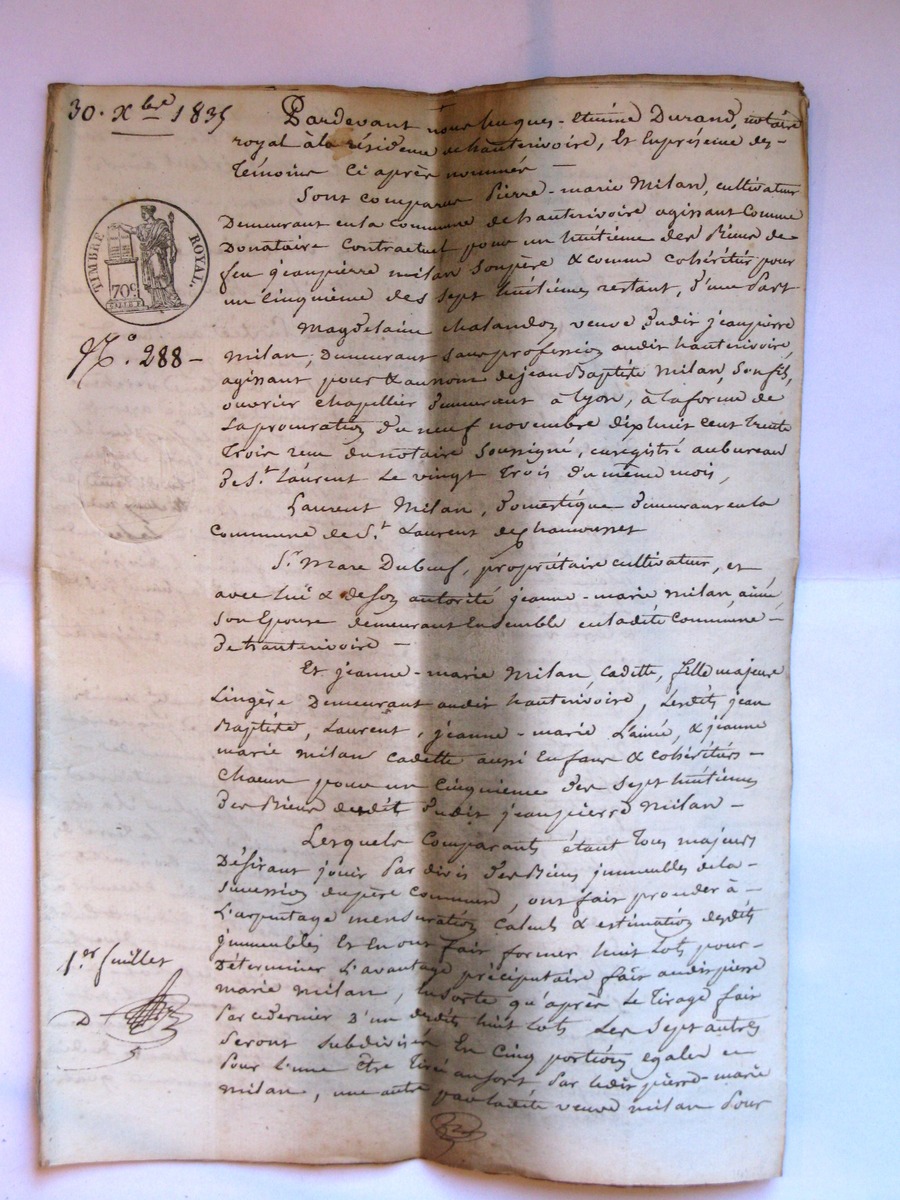 30. Xbre 1835
Pardevant nous hugues-etienne Durand, notaire
royal à la résidence de hauterivoire, Et En présence des-
Témoins Ci après nommés —
Sont comparus Pierre-marie Milan, cultivateur
Demeurant en la commune de hauterivoire agissant Comme
Donataire Contractuel pour un huitième des Biens de
feu jeanpierre milan son père & comme cohéritier pour
un Cinquième des sept huitièmes restant, d'une Part
TIMBRE ROYAL.
70c
Magdelaine chalandon veuve dudit jeanpierre
N.° 288-
milan, Demeurant sans profession audit hauterivoire,
agissant pour & au nom de jean Baptiste Milan, son fils,
ouvrier chapellier demeurant à lyon, à la forme de
La procuration du neuf novembre dix huit cent trente
Trois reçue du notaire soussigné, enregistré au bureau
de St. Laurent Le vingt Trois du même mois,
Laurent Milan, domestique demeurant en la
Commune de St. Laurent de chamousset
Sr. Marc Dubeuf, propriétaire cultivateur, et
avec lui & de son autorité jeanne-marie milan, ainée
son Epouse demeurant Ensemble en ladite Commune-
de hauterivoire —
Et jeanne-marie Milan, cadette, fille majeure
Lingère Demeurant audit hauterivoire, Lesdits jean
Baptiste, Laurent, jeanne-marie L'ainée, & jeanne
marie milan cadette aussi Enfans & cohéritiers-
chacun pour un Cinquième des sept huitièmes
des Biens dudit jeanpierre Milan-
Lesquels Comparants étant Tous majeurs
Désirant jouir Par divis des Biens immeubles de la-
succession du père commun, ont fait procéder à-
L'arpentage mensuration Calculs & estimation desdits
1er. feuillet
jmmeubles Et En ont fait former huit Lots pour-
Déterminer L'avantage préciputaire fait audit pierre
marie milan, En sorte qu'après Le Tirage fait
D
Par ce dernier D'un desdits huit Lots Les sept autres
Seront subdivisés En Cinq portions egales
Pour L'une être Tirée au sort Par ledit pierre-marie
milan, une autre par ladite veuve milan Pour